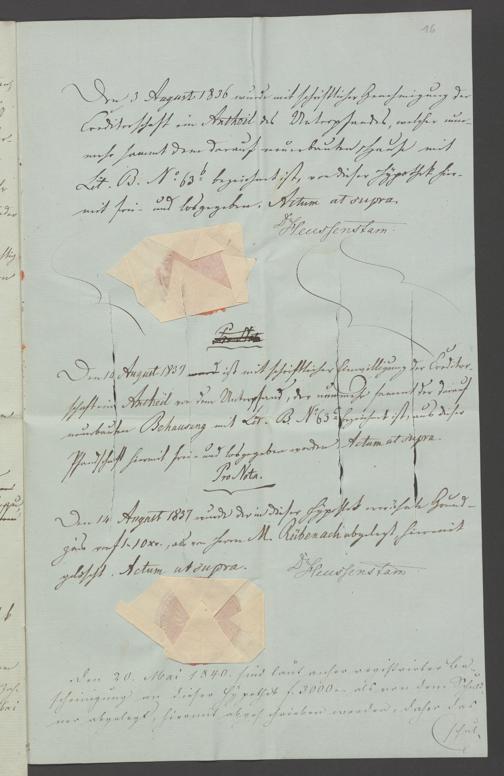 16
Den 3 August 1836 wurde mit schriftlicher Genehmigung der
Creditorschaft ein Antheil des Unterpfandes, welcher nun-
mehr sammt dem darauf neuerbauten Hause mit
Lit. B. No. 63 b bezeichnet ist, von dieser Hypothek hier-
mit frei- und losgegeben. Actum ut supra.
Dr Heussenstam.
Pro Nota
Den 10 August 1837 ist mit schriftlicher Einwilligung der Creditor-
schaft ein Antheil von dem Unterpfand, der nunmehr sammt der darauf
neuerbauten Behausung mit Lit. B. No 63 bezeichnet ist, aus dieser
Pfandschaft hiermit frei- und losgegeben worden Actum ut supra.
Pro Nota.
Den 14 August 1837 wurde der in dieser Hypothek erwähnte Grund-
zins von f 1. 10 xr., als von Herrn M. Rübenach abgelegt hiermit
gelöscht. Actum ut supra. Dr Heussenstam
Den 20. Mai 1840. sind laut anher registrirter Be-
scheinigung an dieser Hypothek f. 3000 als von dem Schuld-
ner abgelegt, hiermit abgeschrieben worden, daher das